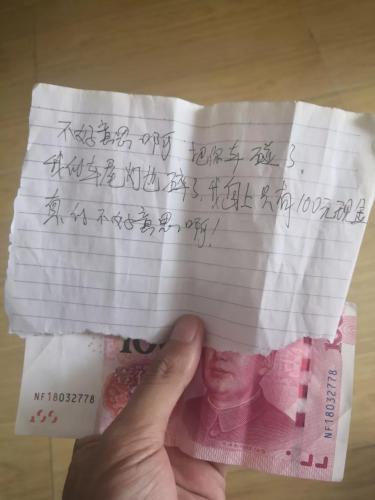 不好意思啊 把你车碰了.
我的车尾灯也碎了,我身上只有100元现金
真的不好意思啊!
NF18032778
NF18032778